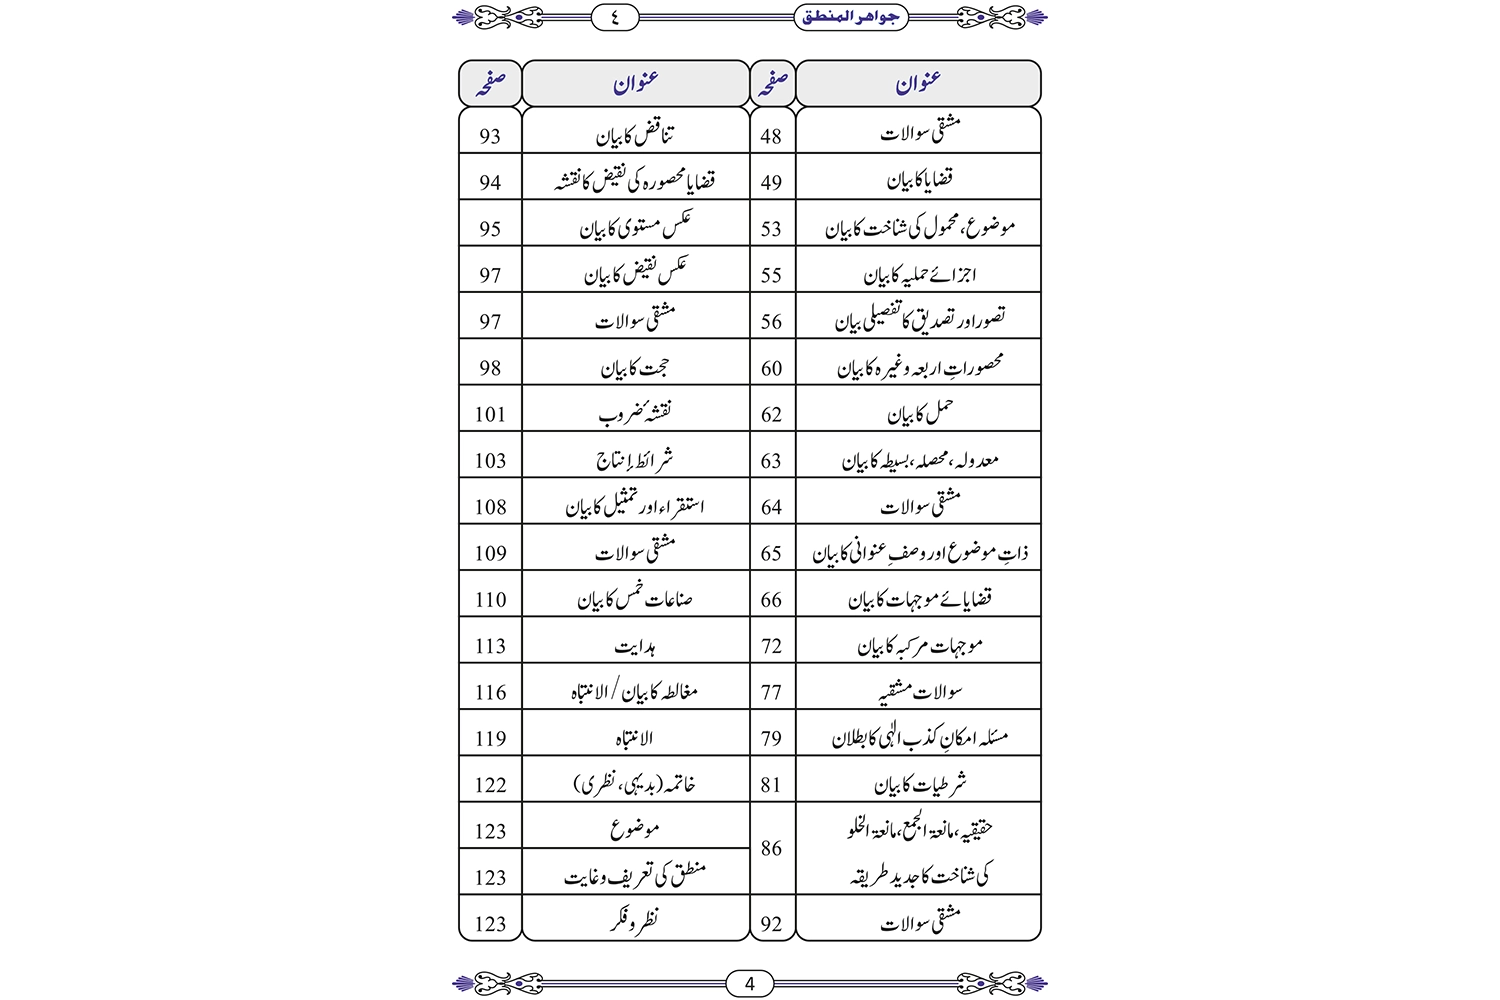 جواهر المنطق ٤
عنوان صفحہ عنوان صفحہ
مشقی سوالات 48 تناقض کا بیان 93
قضایا کا بیان 49 قضایا محصورہ کی نقیض کا نقشہ 94
موضوع، محمول کی شناخت کا بیان 53 عکس مستوی کا بیان 95
اجزائے حملیہ کا بیان 55 عکس نقیض کا بیان 97
تصور اور تصدیق کا تفصیلی بیان 56 مشقی سوالات 97
محصوراتِ اربعہ وغیرہ کا بیان 60 حجت کا بیان 98
حمل کا بیان 62 نقشۂ ضروب 101
معدولہ، محصلہ، بسیطہ کا بیان 63 شرائط اِنتاج 103
مشقی سوالات 64 استقراء اور تمثیل کا بیان 108
ذاتِ موضوع اور وصفِ عنوانی کا بیان 65 مشقی سوالات 109
قضایائے موجہات کا بیان 66 صناعات خمس کا بیان 110
موجہات مرکبہ کا بیان 72 ہدایت 113
سوالات مشقیہ 77 مغالطہ کا بیان/ الانتباہ 116
مسئلہ امکانِ کذب الٰہی کا بطلان 79 الانتباہ 119
شرطیات کا بیان 81 خاتمہ (بدیہی، نظری) 122
حقیقیہ، مانعۃ الجمع، مانعۃ الخلو 86 موضوع 123
کی شناخت کا جدید طریقہ منطق کی تعریف و غایت 123
مشقی سوالات 92 نظر و فکر 123
4